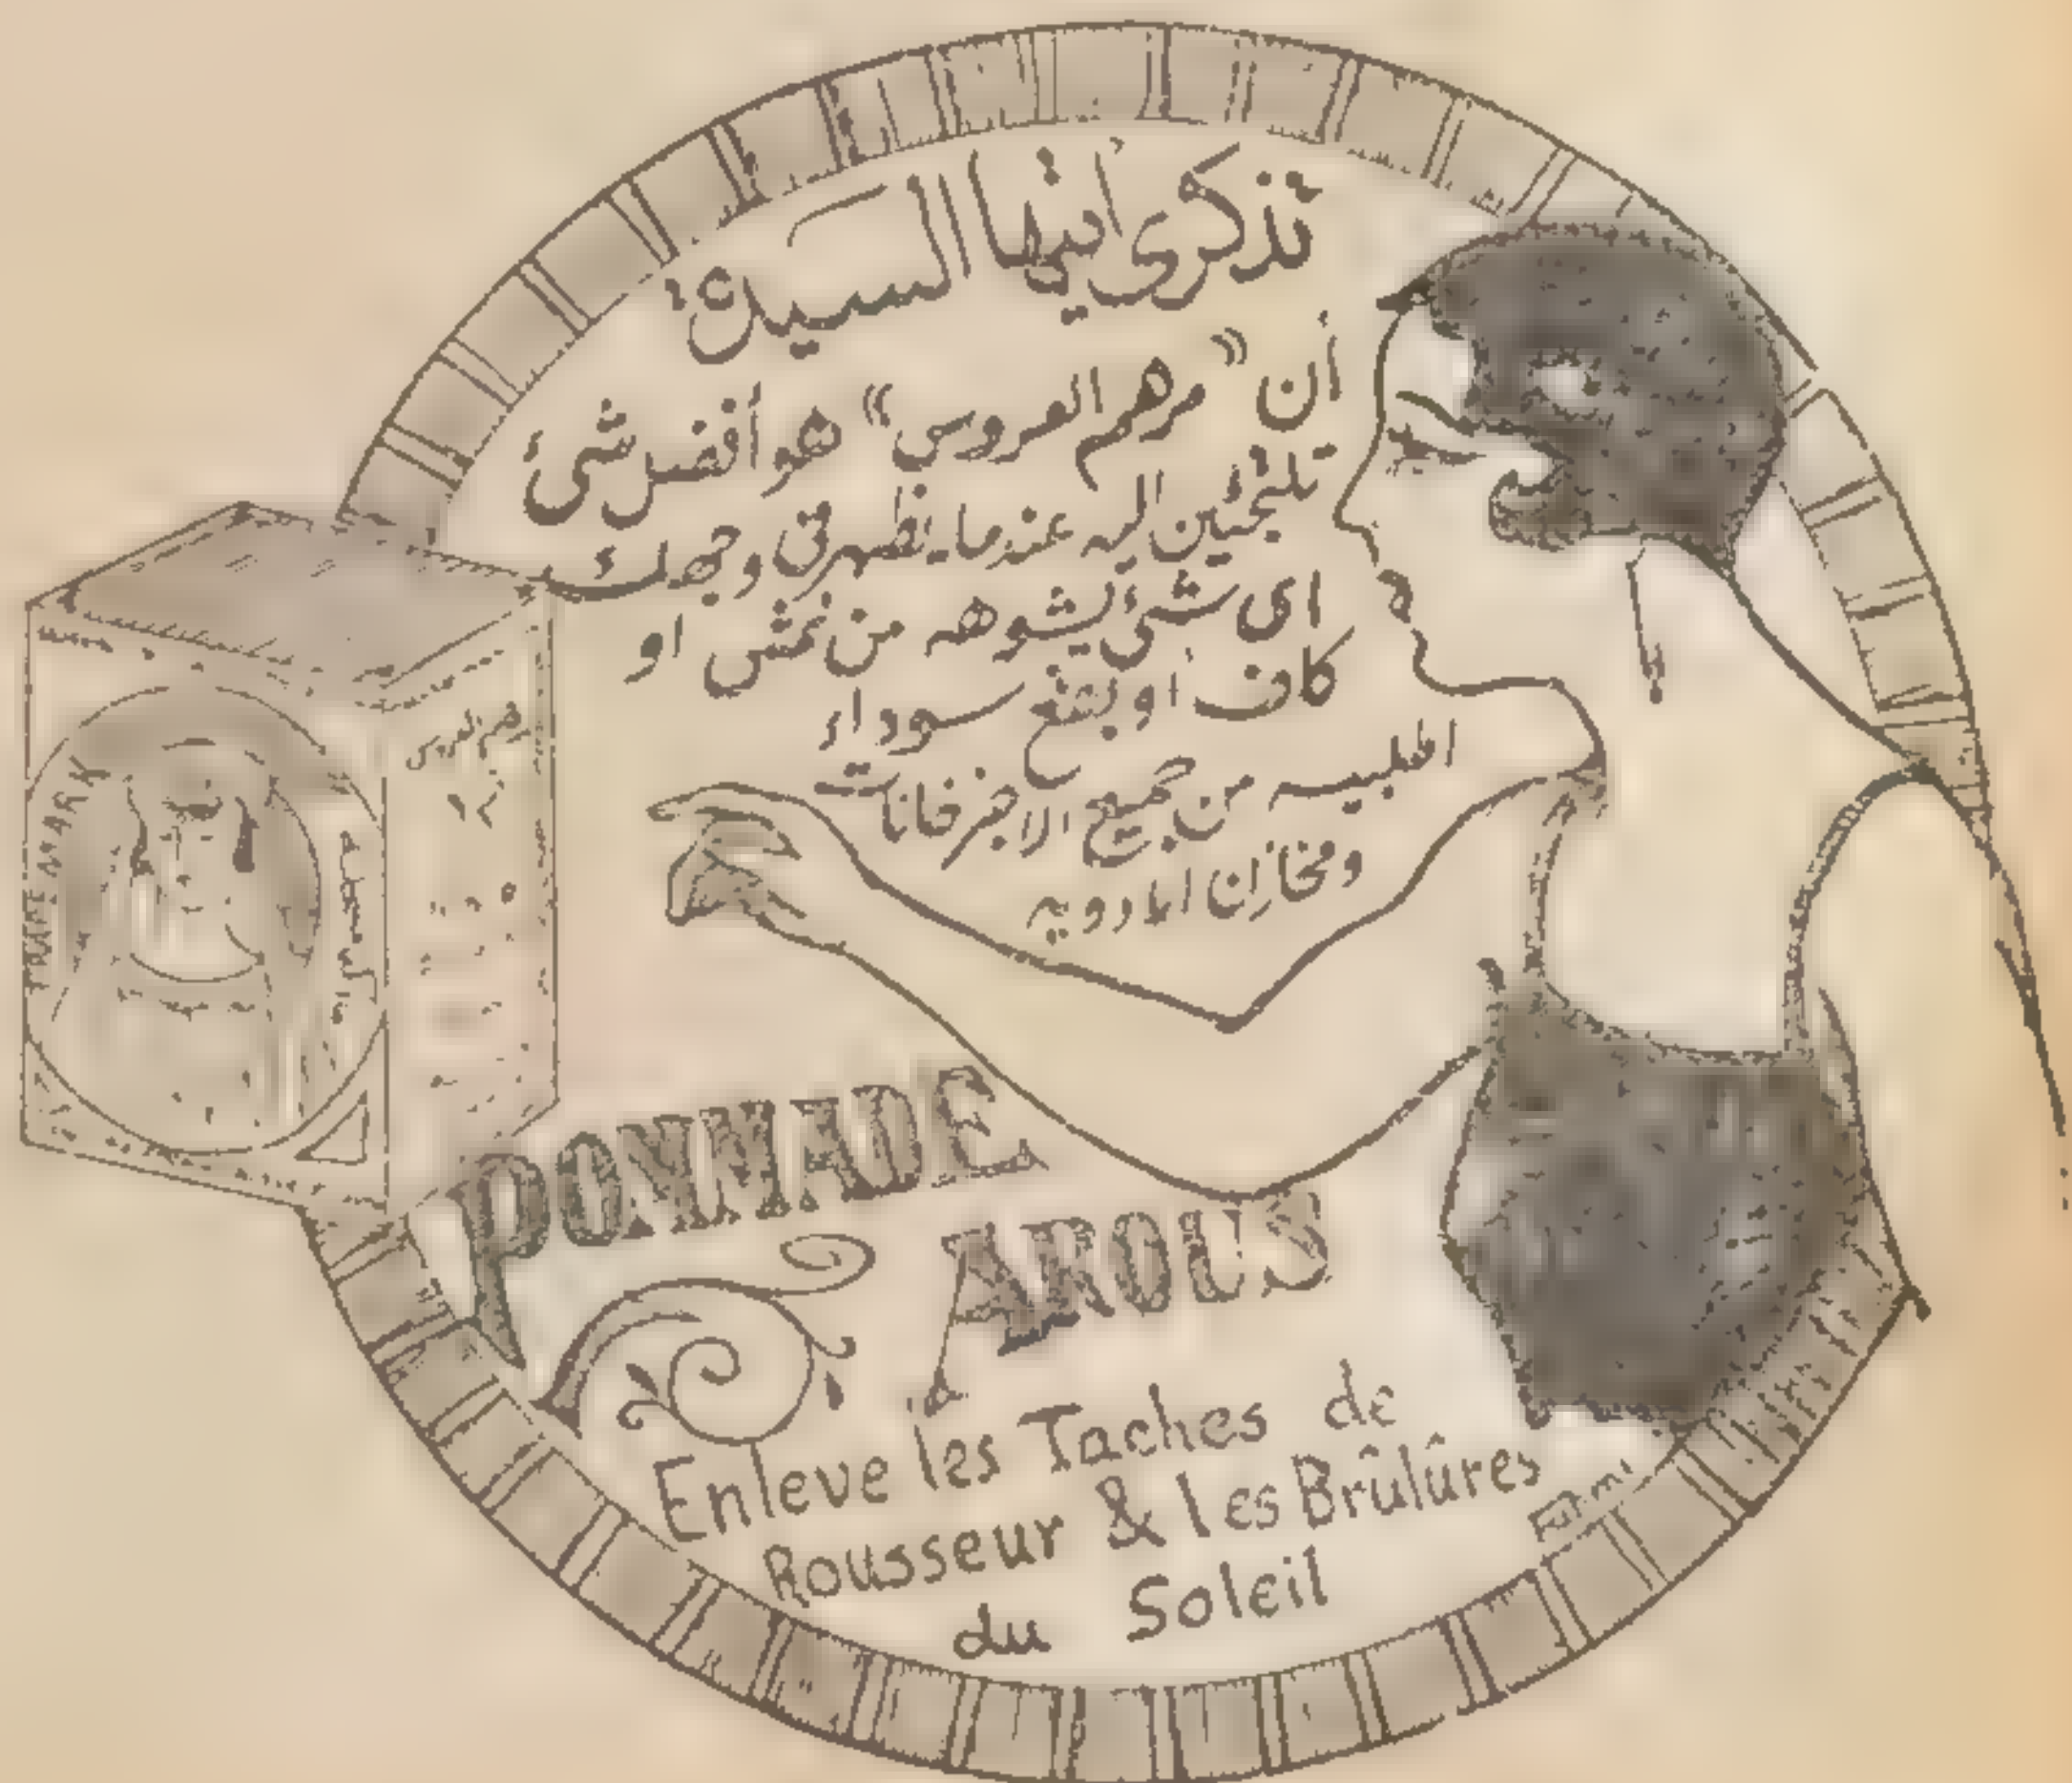 تذكرى أيتها السيدة
أن "مرهم العروسى" هو أفضل شئ
تلتجئين اليه عندما يظهر فى وجهك
اى شئ يشوهه من نمش او
كلف او بقع سوداء
اطلبيه من جميع الاجزخانات
ومخازن الادويه
مرهم العروسى
TRADE MARK
POMMADE
AROUS
Enleve les Taches de
Rousseur & les Brûlûres
du Soleil